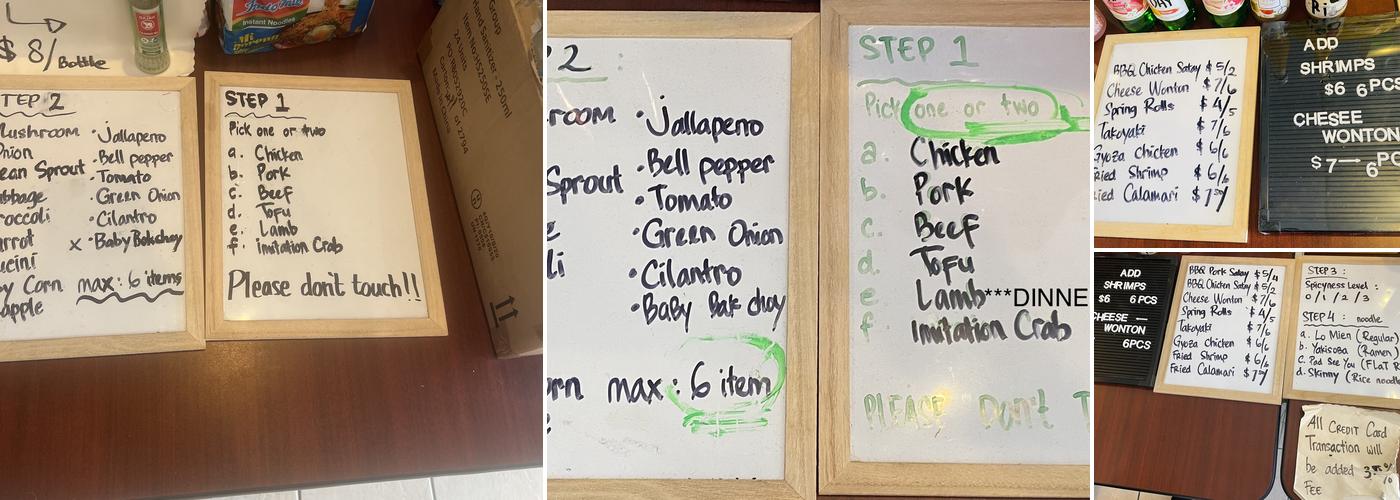 $ 8/Bottle
Indomie
Instant Noodles
Mi
Goreng
Hand Sanitizer - 250ml
24 Units
Made in China
of 2794
STEP 2
Mushroom
Onion
Bean Sprout
Cabbage
Broccoli
Carrot
Zucini
Baby Corn
Pineapple
• Jallapeno
• Bell pepper
• Tomato
• Green Onion
• Cilantro
x • Baby Bokchoy
max : 6 items
STEP 1
Pick one or two
a. Chicken
b. Pork
c. Beef
d. Tofu
e. Lamb
f. Imitation Crab
Please don't touch!!
2 :
room
Sprout
e
li
orn
• Jallapeno
• Bell pepper
• Tomato
• Green Onion
• Cilantro
• Baby Bak choy
max : 6 item
STEP 1
Pick one or two
a. Chicken
b. Pork
c. Beef
d. Tofu
e. Lamb***DINNE
f. Imitation Crab
PLEASE Don't T
BBQ Chicken Satay $ 5/2
Cheese Wonton $ 7/6
Spring Rolls $ 4/5
Takoyaki $ 7/6
Gyoza Chicken $ 6/6
Fried Shrimp $ 6/6
Fried Calamari $ 7.50/
ADD
SHRIMPS
$6 6PCS
CHESEE
WONTON
$7— 6PC
ADD
SHRIMPS
$6 6PCS
CHEESE —
WONTON
6PCS
BBQ Pork Satay $ 5/4
BBQ Chicken Satay $ 5/2
Cheese Wonton $ 7/6
Spring Rolls $ 4/5
Takoyaki $ 7/6
Gyoza Chicken $ 6/6
Fried Shrimp $ 6/6
Fried Calamari $ 7.50/
STEP 3 :
Spicyness Level :
0 / 1 / 2 / 3
STEP 4 : noodle
a. Lo Mien (Regular)
b. Yakisoba (Ramen)
c. Pad See You (FLaT R
d. Skinny (Rice noodl
All CREDIT Card
Transaction will
be added
FEE